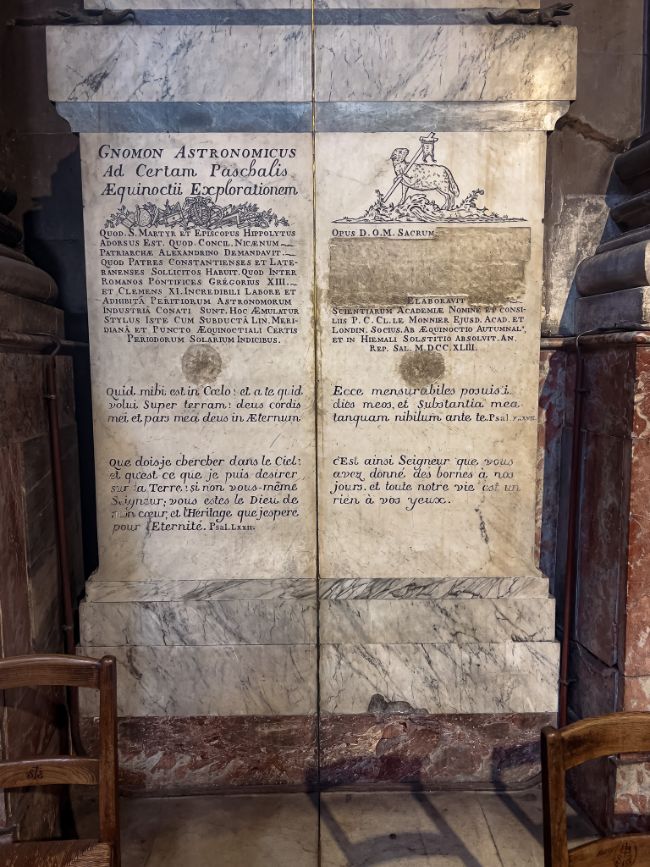 GNOMON ASTRONOMICUS
Ad Certam Paschalis
Æquinoctii Explorationem
QUOD. S. MARTYR ET EPISCOPUS HIPPOLYTUS
ADORSUS EST. QUOD. CONCIL. NICÆNUM
PATRIARCHÆ ALEXANDRINO DEMANDAVIT.
QUOD PATRES CONSTANTIENSES ET LATE-
RANENSES SOLLICITOS HABUIT. QUOD INTER
ROMANOS PONTIFICES GREGORIUS XIII.
ET CLEMENS XI. INCREDIBILI LABORE ET
ADHIBITÂ PERITIORUM ASTRONOMORUM
INDUSTRIÂ CONATI SUNT. HOC ÆMULATUR
STYLUS ISTE CUM SUBDUCTÂ LIN. MERI-
DIANÂ ET PUNCTO ÆQUINOCTIALI CERTIS
PERIODORUM SOLARIUM INDICIBUS.
Quid mihi est in Cœlo: et a te quid
volui Super terram: deus cordis
mei, et pars mea deus in Æternum
Que dois je chercher dans le Ciel:
et qu'est ce que je puis desirer
sur la Terre: si non vous-même
Seigneur; vous estes le Dieu de
mon cœur, et l'Héritage que j'espere
pour l'Eternité. Psal. LXXII.
OPUS D.O.M. SACRUM
ELABORAVIT
SCIENTIARUM ACADEMIÆ NOMINE ET CONSI-
LIIS P. C. CL. LE MONNIER EJUSD. ACAD. ET
LONDIN. SOCIUS. AB ÆQUINOCTIO AUTUMNAL'
ET IN HIEMALI SOLSTITIO ABSOLVIT. AN.
REP. SAL. M.DCC.XLIII.
Ecce mensurabiles posuisti
dies meos, et Substantia mea
tanquam nihilum ante te. Psal.
c'Est ainsi Seigneur que vous
avez donné des bornes à nos
jours. et toute notre vie est un
rien à vos yeux.